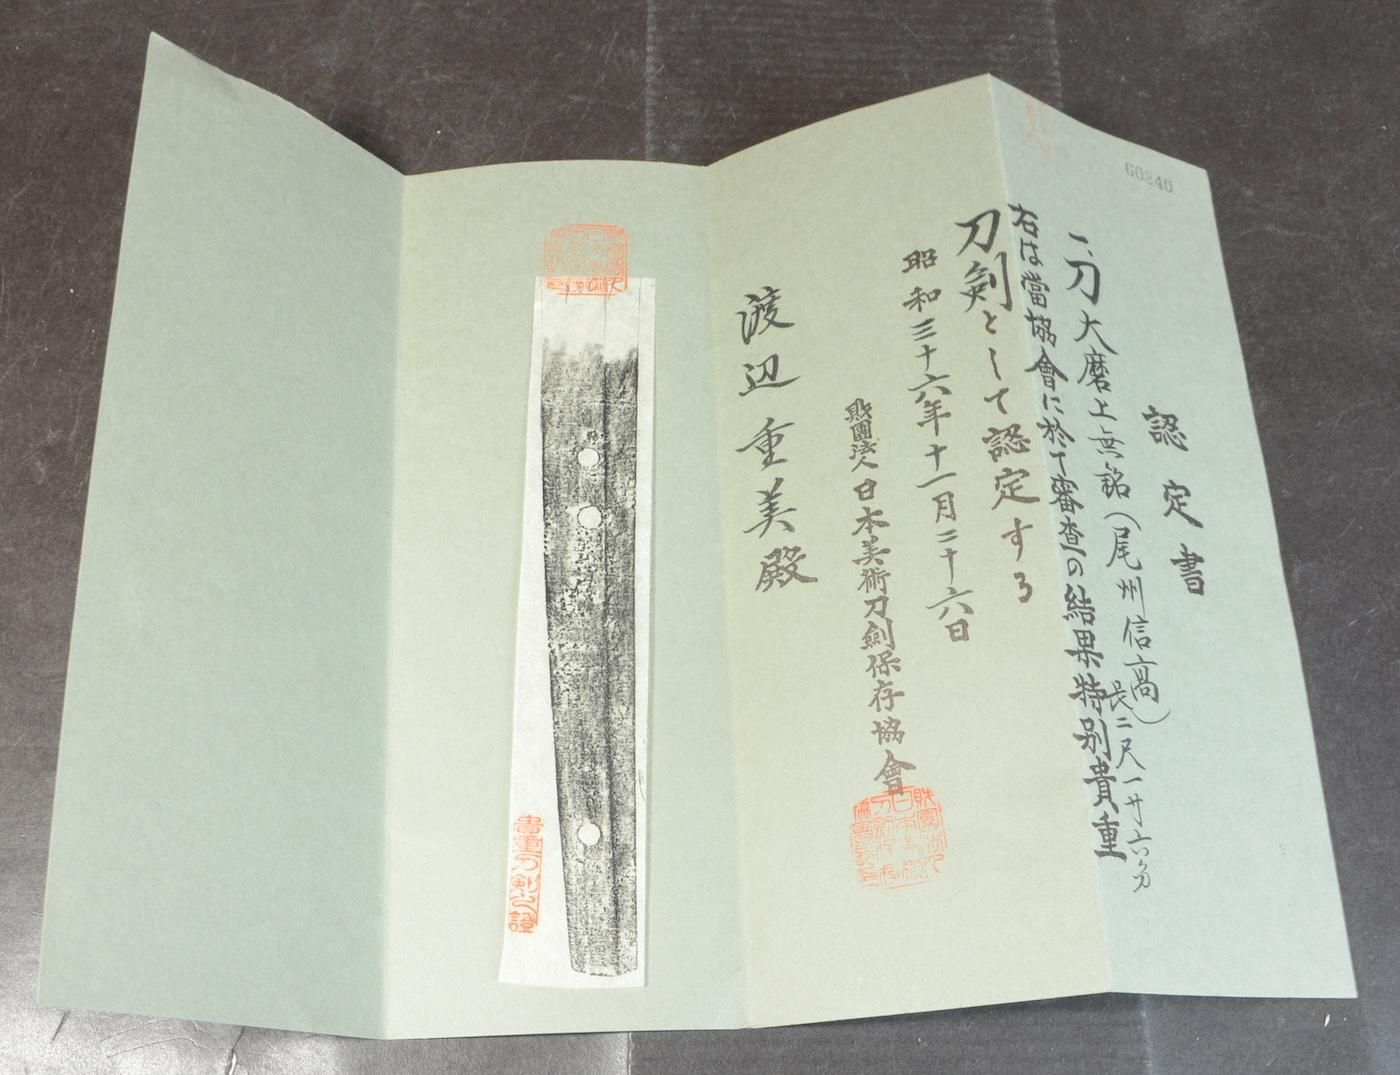 60340
認定書
一、刀 大磨上無銘(尾州信高)
長二尺一寸六分
右は當協會に於て審査の結果特別貴重
刀劍として認定する
昭和三十六年十一月二十六日
財團法人日本美術刀劍保存協會
渡辺重美殿
貴重刀剣之證